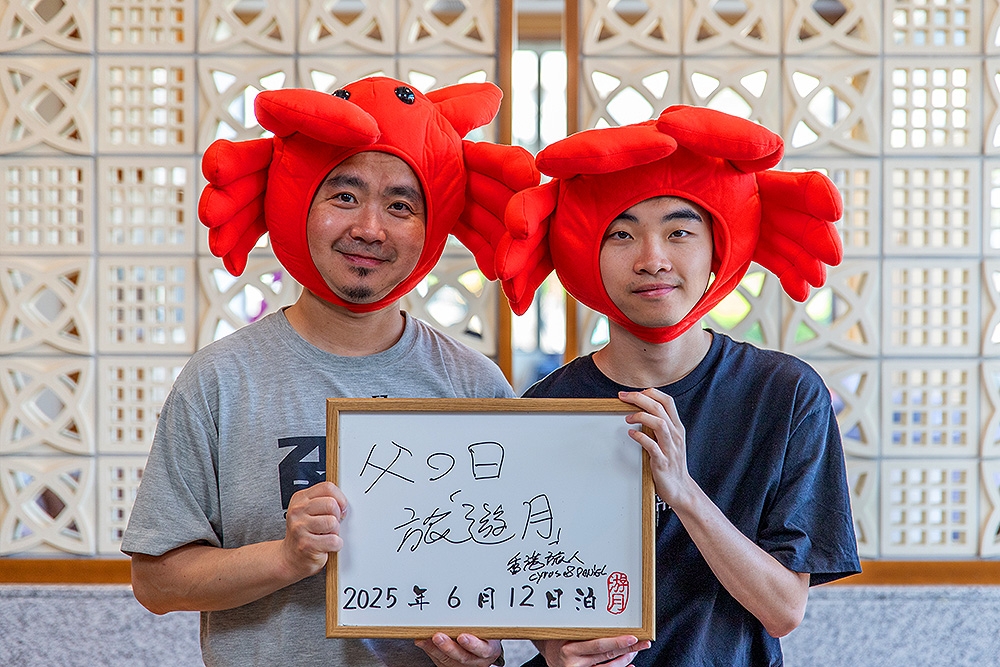 父の日
旅「遊月」
香港旅人
Cyrus & DANIEL
2025年6月12日泊
游月